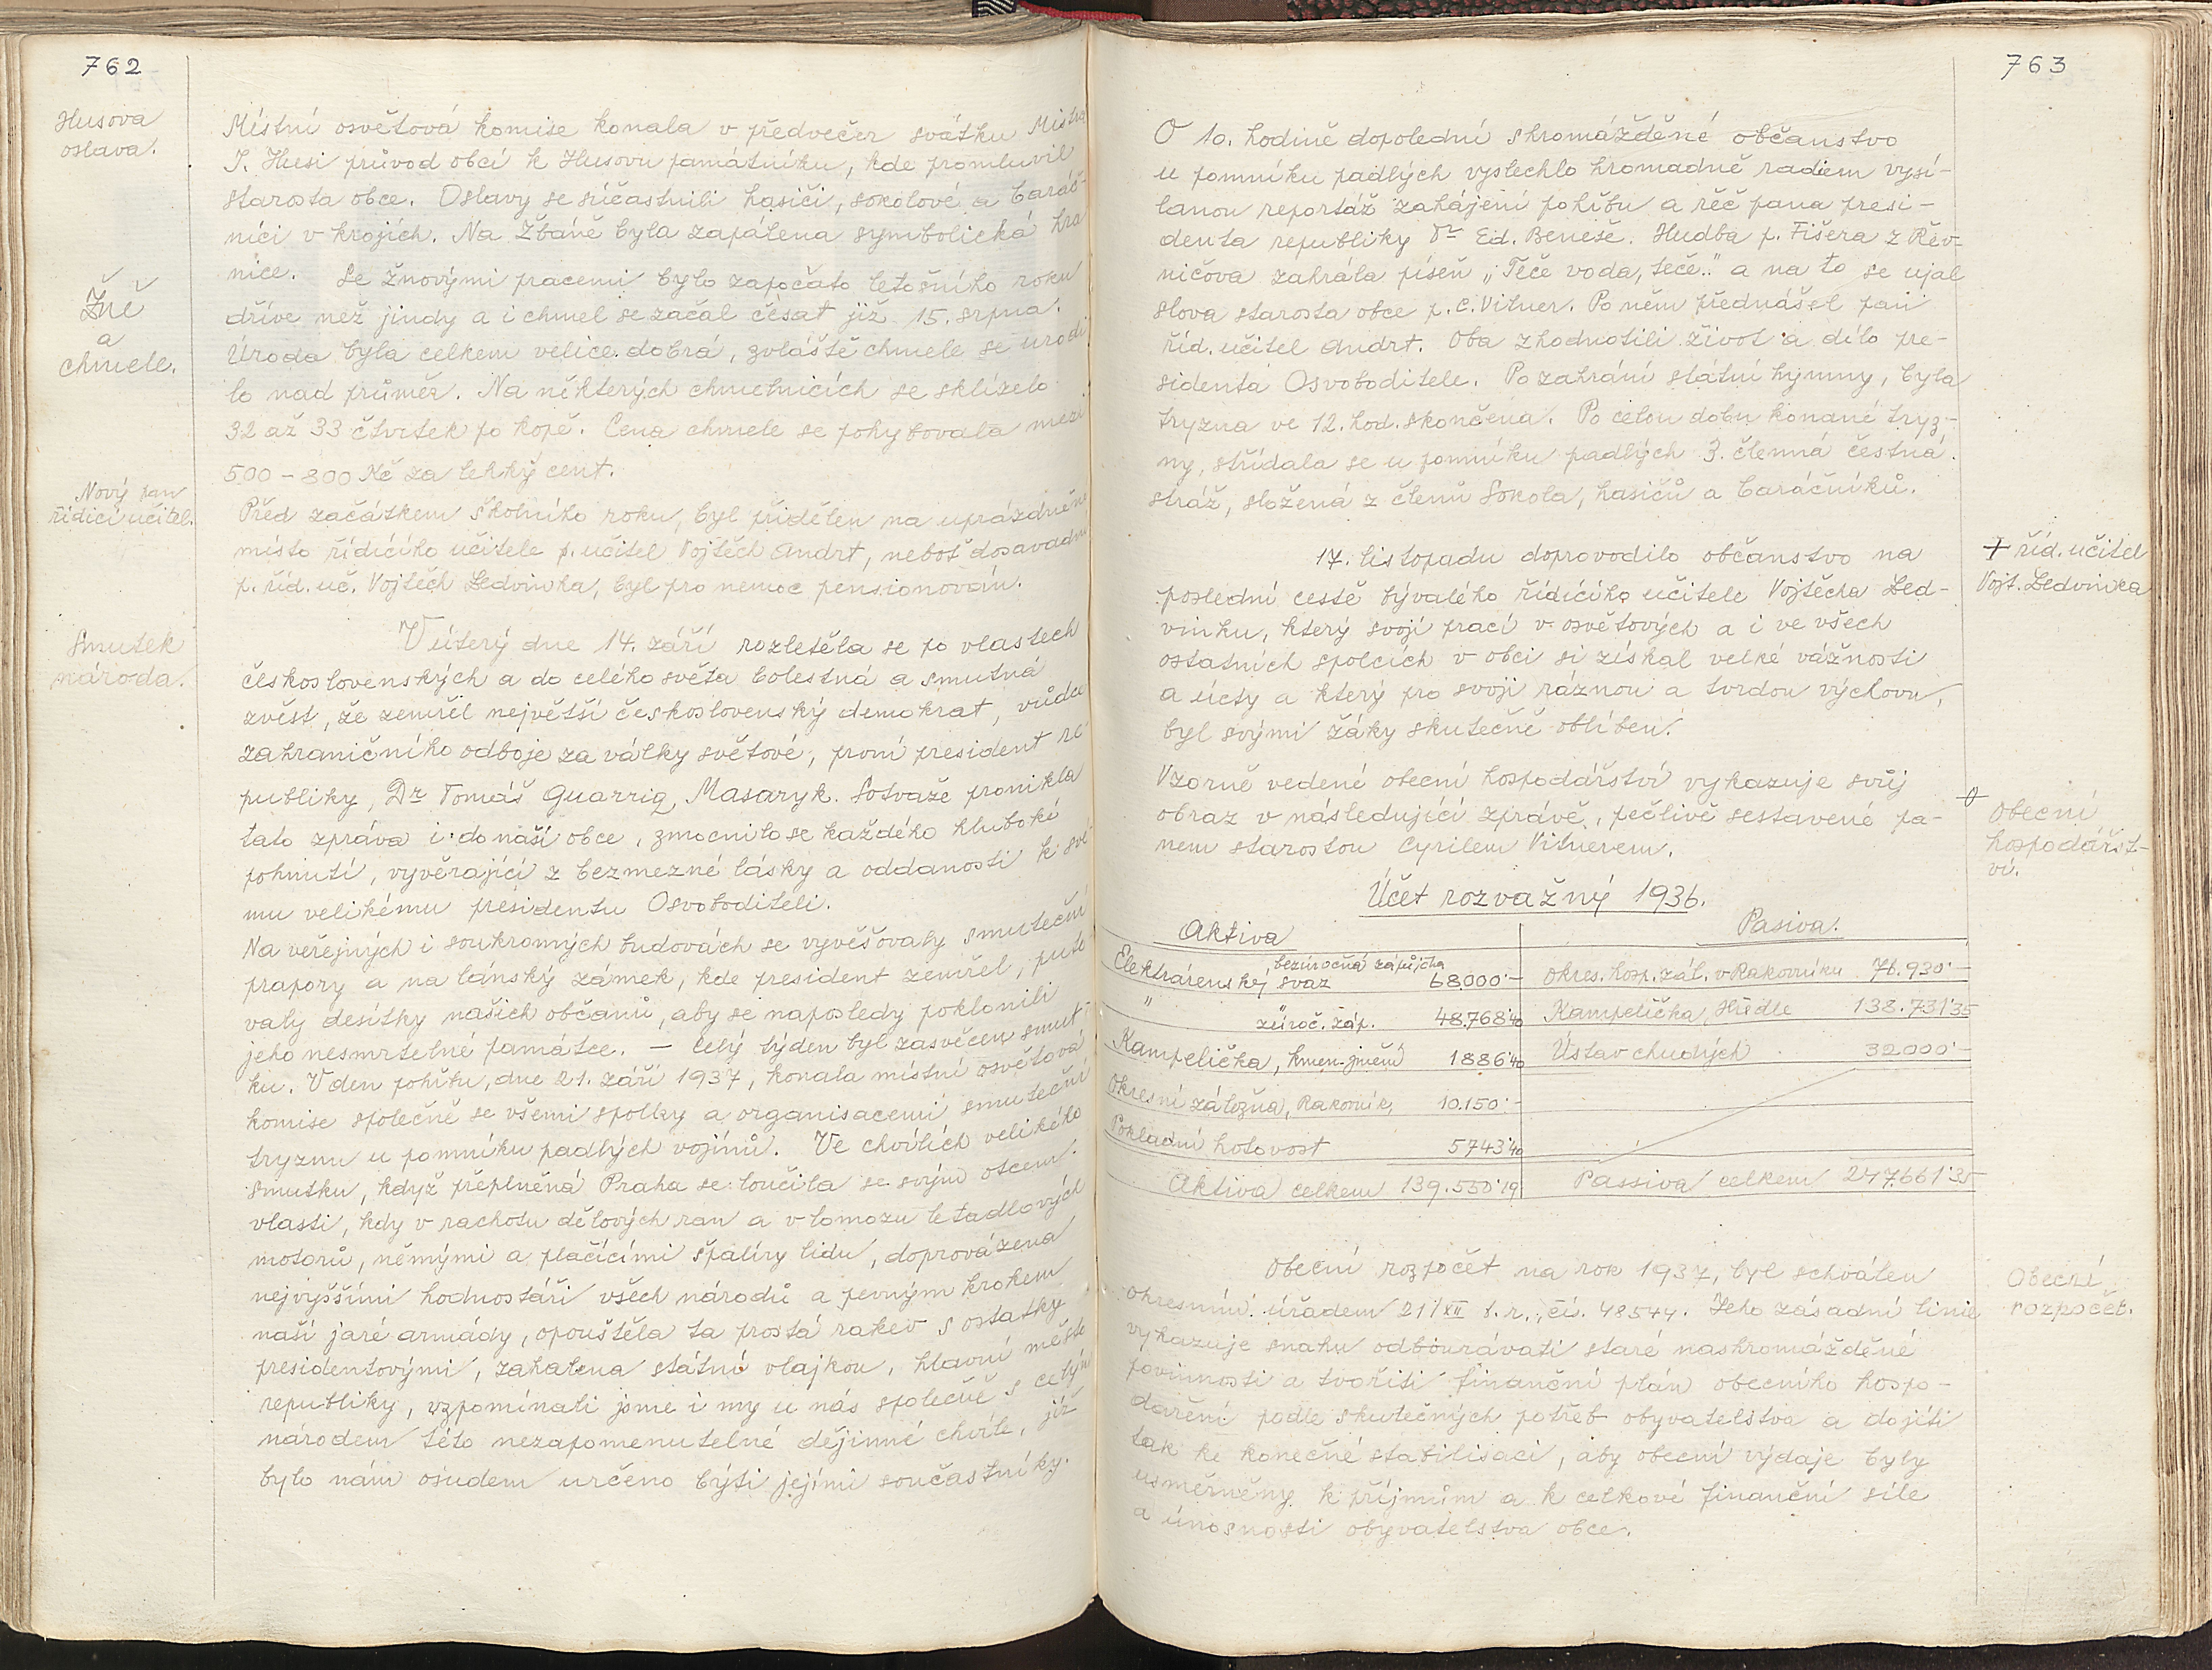 762
Husova
oslava.
Místní osvětová komise konala v předvečer svátku Mistra
J. Husi průvod obcí k Husovu památníku, kde promluvil
starosta obce. Oslavy se súčastnili hasiči, sokolové a baráč-
níci v krojích. Na Žbáně byla zapálena symbolická hra
nice.
Žně
a
chmele.
Se žnovými pracemi bylo započato letošního roku
dříve než jindy a i chmel se začal česat již 15. srpna.
Úroda byla celkem velice dobrá, zvláště chmele se urodi
lo nad průměr. Na některých chmelnicích se sklízelo
32 až 33 čtvrtek po kopě. Cena chmele se pohybovala mezi
500 - 800 Kč za lehký cent.
Nový pan
řídící učitel.
Před začátkem školního roku, byl přidělen na uprázdněné
místo řídícího učitele p. učitel Vojtěch Andrt, neboť dosavadní
p. říd. uč. Vojtěch Ledvinka, byl pro nemoc pensionován.
Smutek
národa.
V úterý dne 14. září rozletěla se po vlastech
československých a do celého světa bolestná a smutná
zvěst, že zemřel největší československý demokrat, vůdce
zahraničního odboje za války světové, první president re
publiky, Dr Tomáš Guarrig, Masaryk. Sotvaže pronikla
tato zpráva i do naší obce, zmocnilo se každého hluboké
pohnutí, vyvěrající z bezmezné lásky a oddanosti k své
mu velikému presidentu Osvoboditeli.
Na veřejných i soukromých budovách se vyvěšovaly smuteční
prapory a na lánský zámek, kde president zemřel, puto
valy desítky našich občanů, aby se naposledy poklonili
jeho nesmrtelné památce. — Celý týden byl zasvěcen smut-
ku. V den pohřbu, dne 21. září 1937, konala místní osvětová
komise společně se všemi spolky a organisacemi smuteční
tryznu u pomníku padlých vojínů. Ve chvílích velikého
smutku, když přeplněná Praha se loučila se svým otcem.
vlasti, kdy v rachotu dělových ran a v lomozu letadlových
motorů, němými a plačícími špalíry lidu, doprovázena
nejvyššími hodnostáři všech národů a pevným krokem
naší jaré armády, opouštěla ta prostá rakev s ostatky
presidentovými, zahalena státní vlajkou, hlavní město
republiky, vzpomínali jsme i my u nás společně s celým
národem této nezapomenutelné dějinné chvíle, jíž
bylo nám osudem určeno býti jejími součastníky.
763
O 10. hodině dopolední shromážděné občanstvo
u pomníku padlých vyslechlo hromadně radiem vysí-
lanou reportáž zahájení pohřbu a řěč pana presi-
denta republiky Dr Ed. Beneše. Hudba p. Fišera z Řev-
ničova zahrála píseň „Teče voda, teče.." a na to se ujal
slova starosta obce p. C. Vitner. Po něm přednášel pan
říd. učitel Andrt. Oba zhodnotili život a dílo pre-
sidenta Osvoboditele. Po zahrání státní hymny, byla
tryzna ve 12. hod. skončena. Po celou dobu konané tryz-
ny, střídala se u pomníku padlých 3. členná čestná
stráž, složená z členů Sokola, hasičů a baráčníků.
+ říd. učitel
Vojt. Ledvinka
17. listopadu doprovodilo občanstvo na
poslední cestě bývalého řídícího učitele Vojtěcha Led-
vinku, který svojí prací v osvětových a i ve všech
ostatních spolcích v obci si získal velké vážnosti
a úcty a který pro svoji ráznou a tvrdou výchovu,
byl svými žáky skutečně oblíben.
Obecní
hospodářst-
ví.
Vzorně vedené obecní hospodářství vykazuje svůj
obraz v následující zprávě, pečlivě sestavené pa-
nem starostou Cyrilem Vitnerem.
Účet rozvažný 1936.
Aktiva Pasiva.
Elektrárenský svaz, bezúročná zápůjčka 68000·— Okres. hosp. zál. v Rakovníku 76.930·—
" zúroč. záp. 48.768·40 Kampelička, Hředle 138.731·35
Kampelička, kmen. jmění 1886·40 Ústav chudých 32000·—
Okresní záložna, Rakovník, 10.150·—
Pokladní hotovost 5743·40
Aktiva celkem 139.550·19 Passiva celkem 247.661·35
Obecní
rozpočet.
Obecní rozpočet na rok 1937, byl schválen
okresním úřadem 21/XII t. r., čí. 48544. Jeho zásadní linie
vykazuje snahu odbourávati staré nashromážděné
povinnosti a tvořiti finanční plán obecního hospo-
daření podle skutečných potřeb obyvatelstva a dojíti
tak ke konečné stabilisaci, aby obecní výdaje byly
usměrněny k příjmům a k celkové finanční síle
a únosnosti obyvatelstva obce.